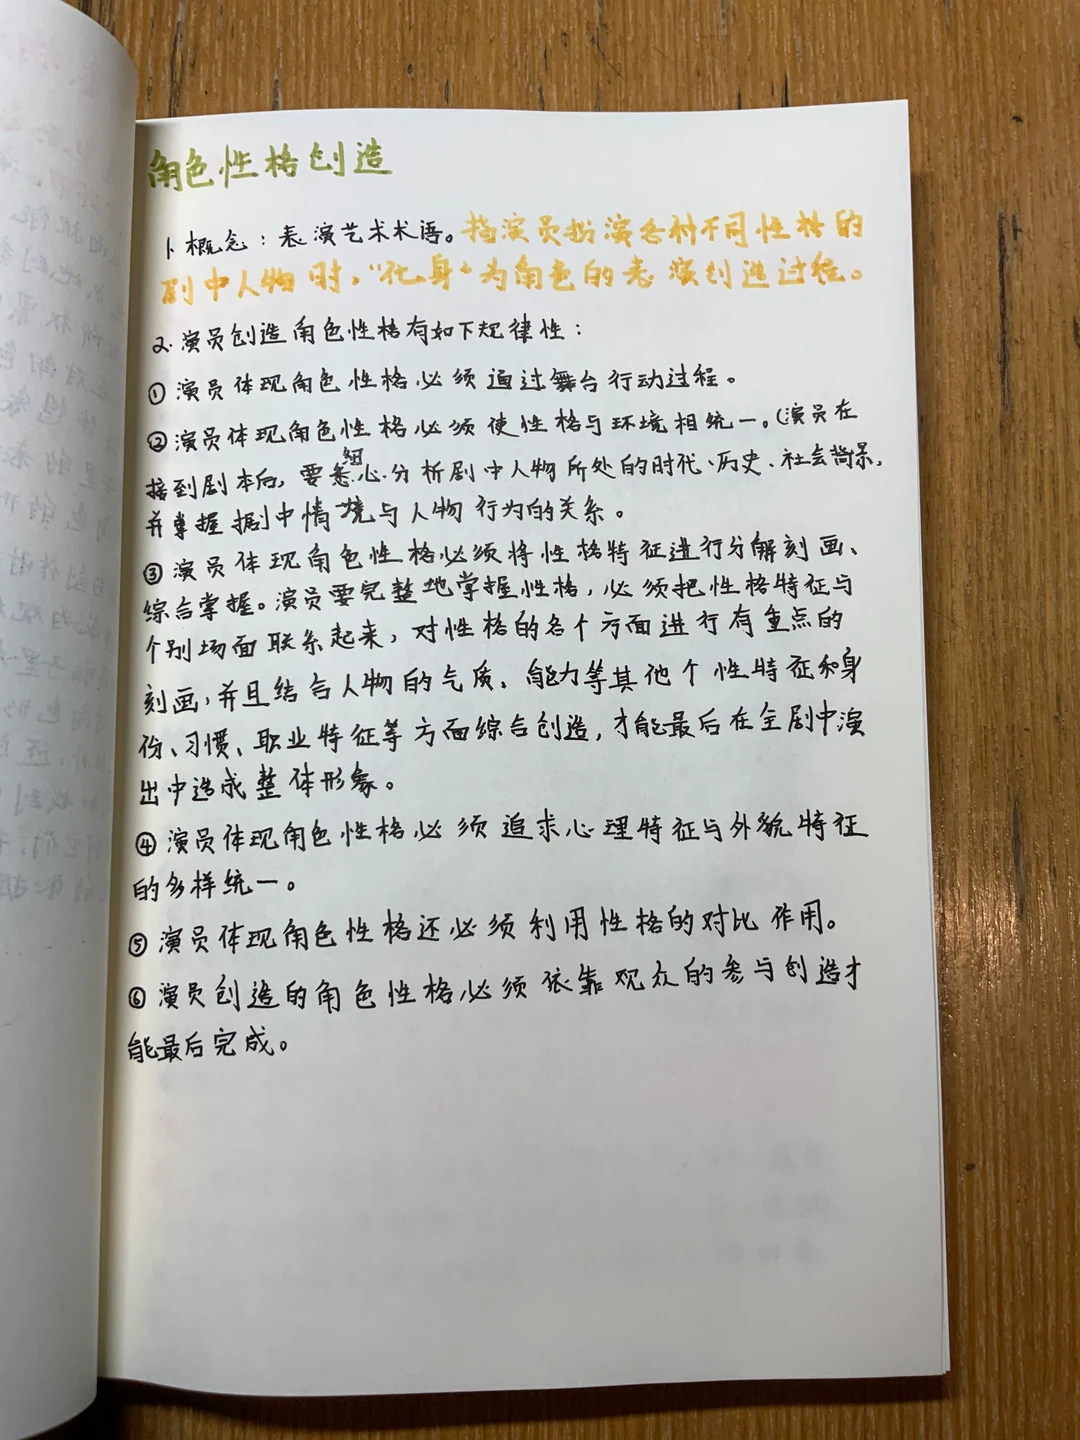 角色性格创造
1、概念：表演艺术术语。指演员扮演各种不同性格的
剧中人物时，“化身”为角色的表演创造过程。
2.演员创造角色性格有如下规律性：
①演员体现角色性格必须通过舞台行动过程。
②演员体现角色性格必须使性格与环境相统一。（演员在
接到剧本后，要细心分析剧中人物所处的时代、历史、社会背景，
并掌握剧中情境与人物行为的关系。
③演员体现角色性格必须将性格特征进行分解刻画、
综合掌握。演员要完整地掌握性格，必须把性格特征与
个别场面联系起来，对性格的各个方面进行有重点的
刻画，并且结合人物的气质、能力等其他个性特征和身
份、习惯、职业特征等方面综合创造，才能最后在全剧中演
出中造成整体形象。
④演员体现角色性格必须追求心理特征与外貌特征
的多样统一。
⑤演员体现角色性格还必须利用性格的对比作用。
⑥演员创造的角色性格必须依靠观众的参与创造才
能最后完成。